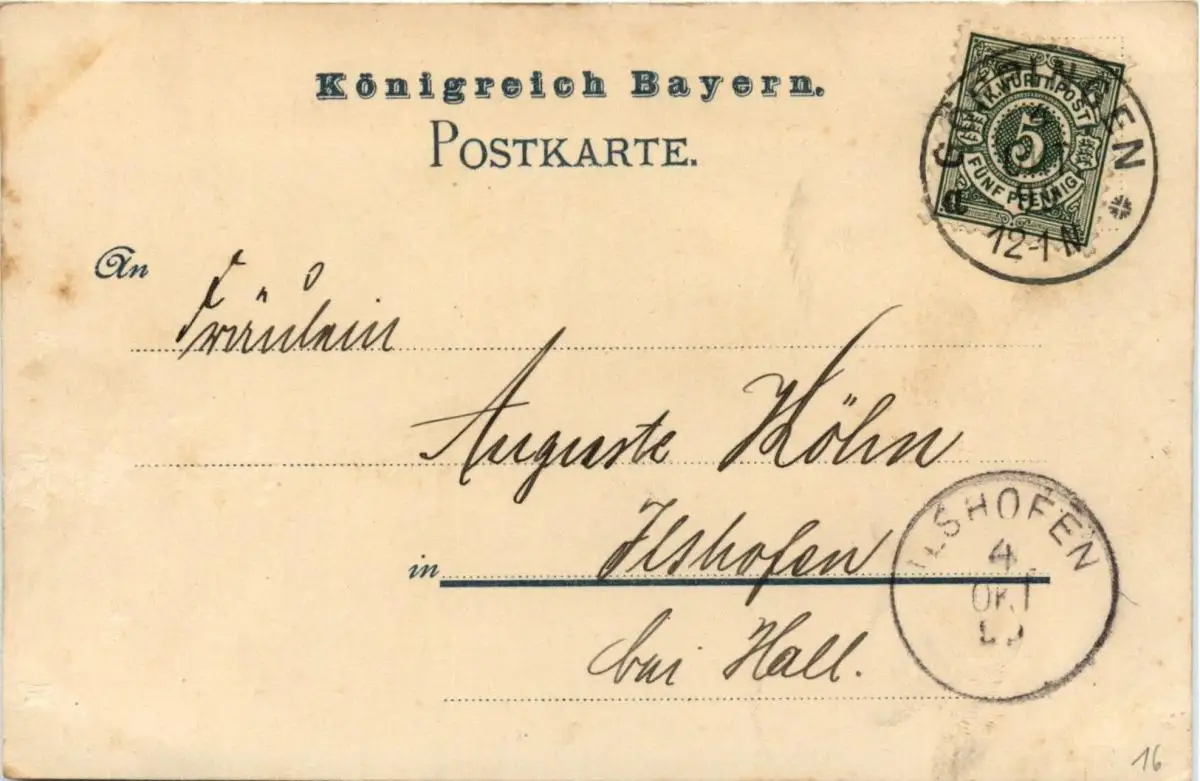 Königreich Bayern.
POSTKARTE.
K. WÜRTT. POST
5
FÜNF PFENNIG
12-1 N
An Fräulein
Auguste Köhn
in Ilshofen
bei Hall.
ILSHOFEN
4
OKT
16